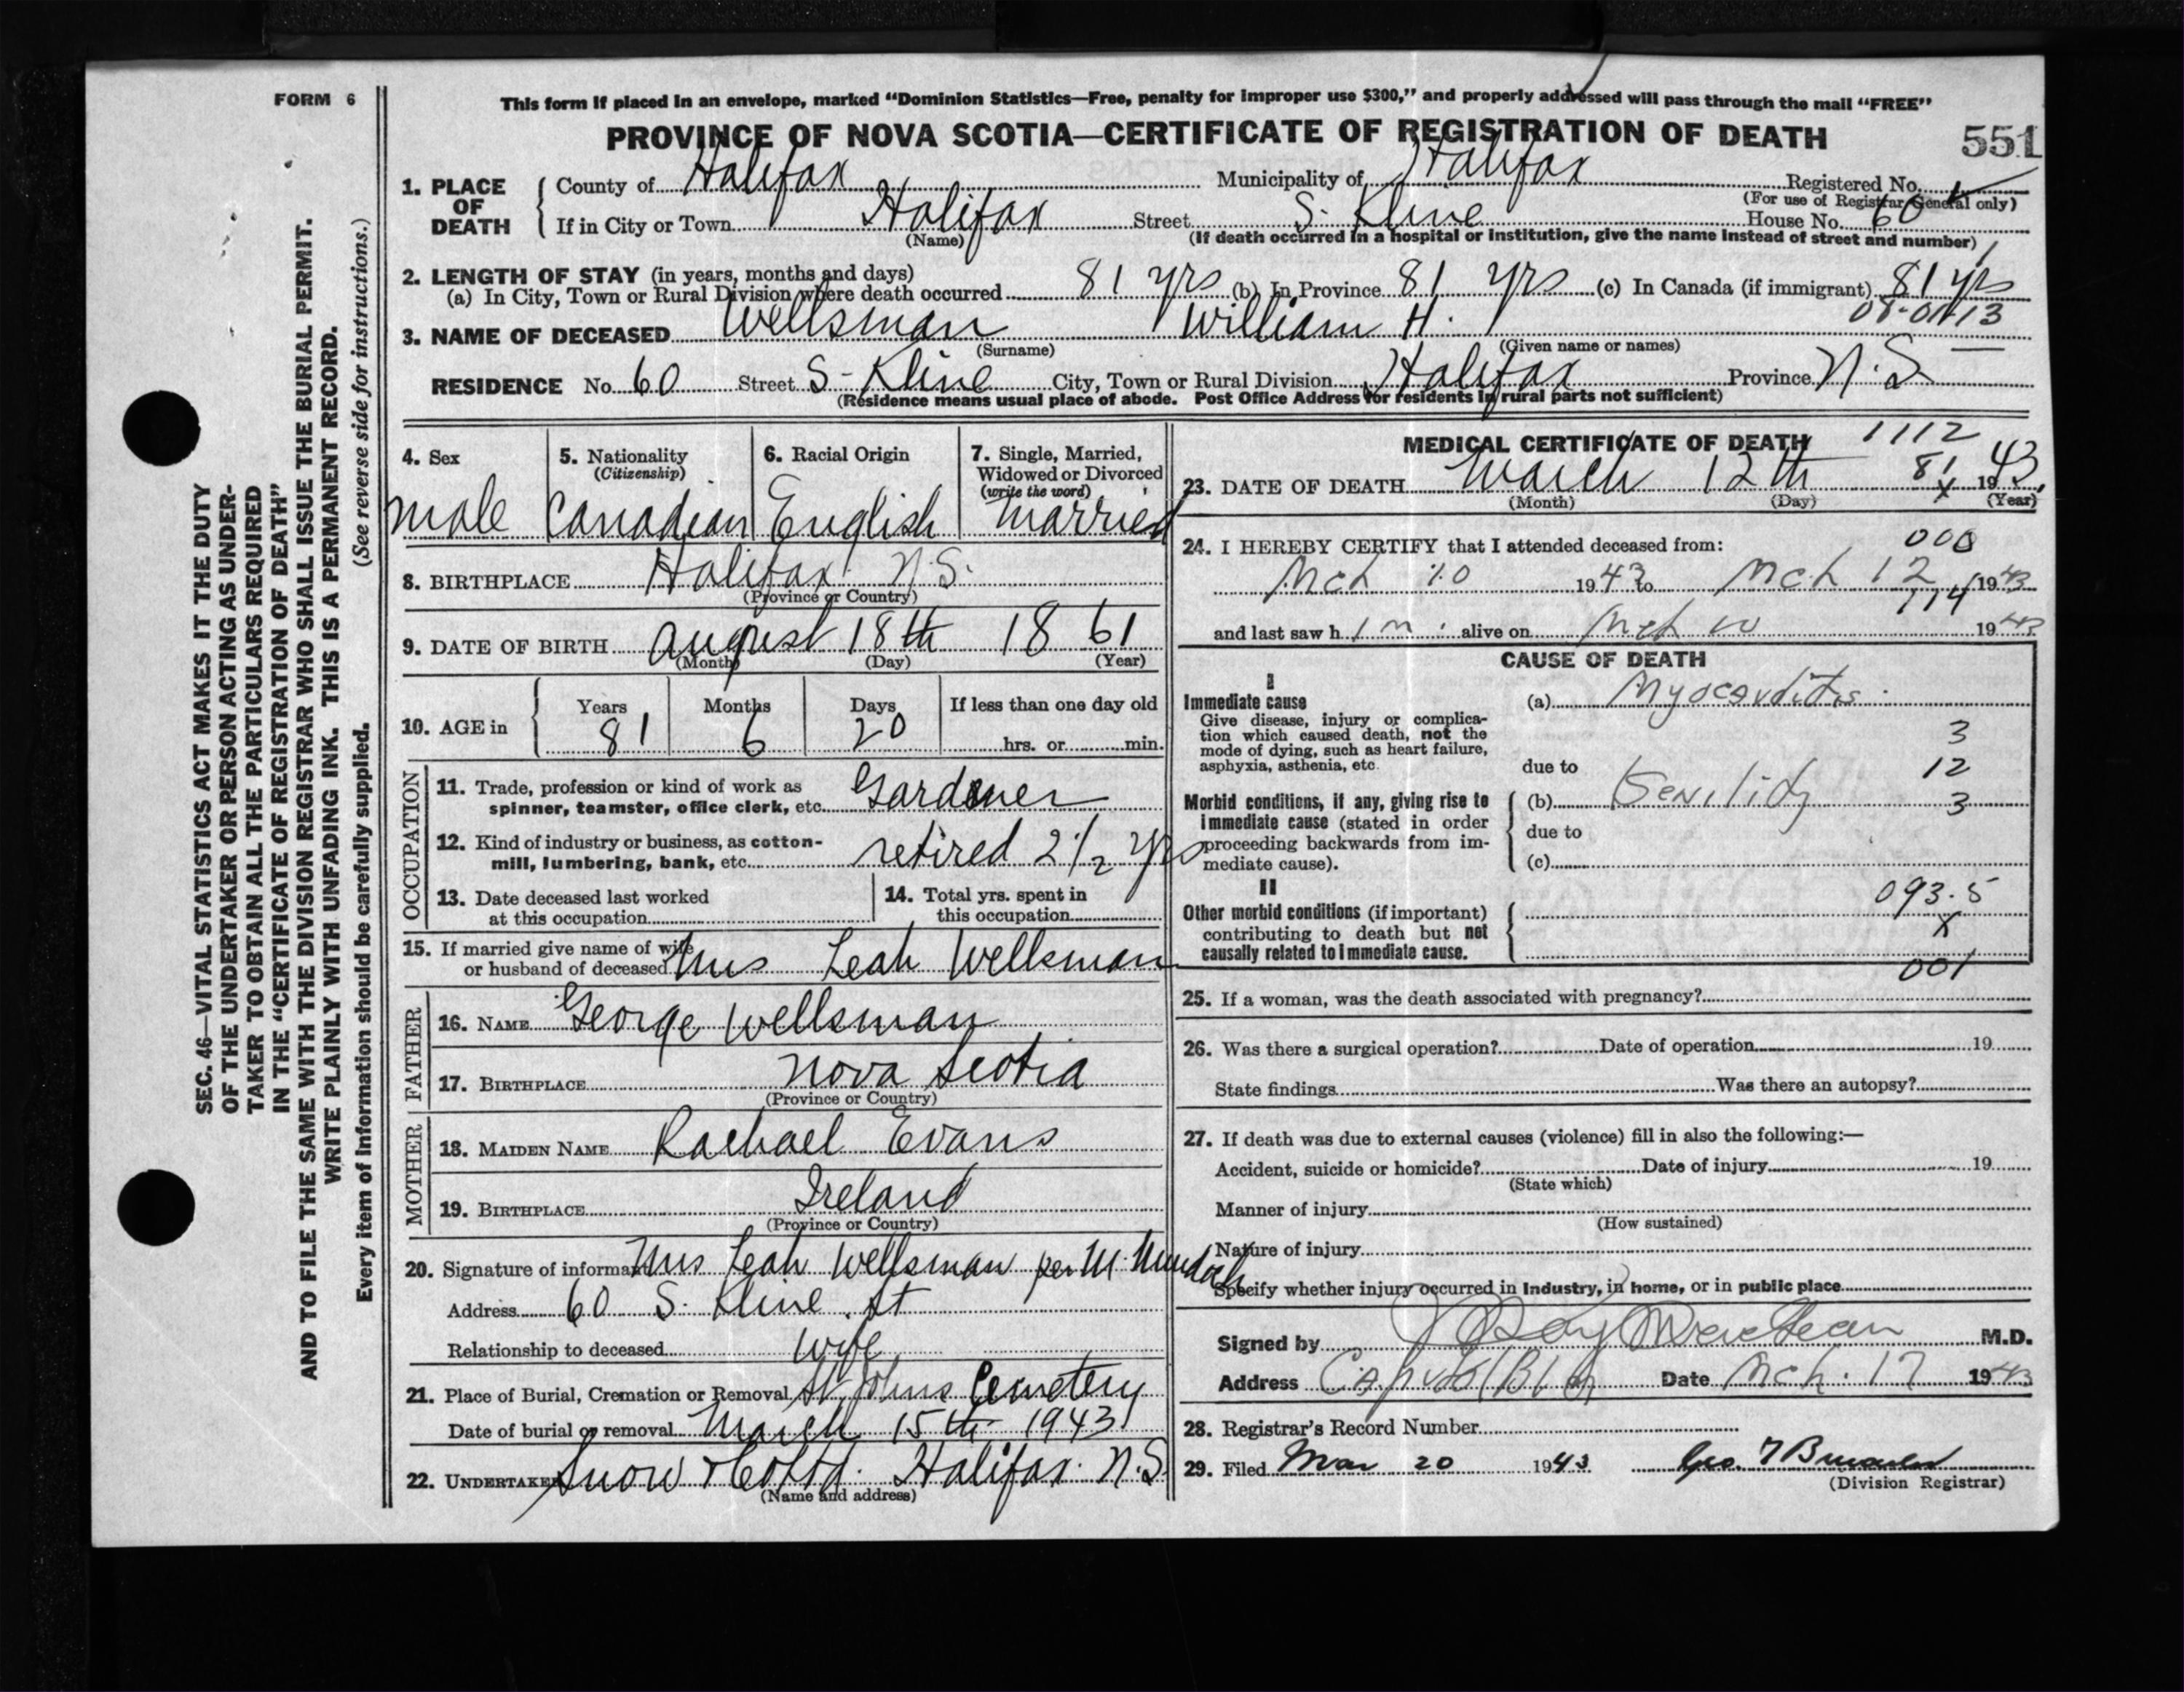 FORM 6
This form if placed in an envelope, marked “Dominion Statistics—Free, penalty for improper use $300,” and properly addressed will pass through the mail “FREE”
PROVINCE OF NOVA SCOTIA—CERTIFICATE OF REGISTRATION OF DEATH
551
1. PLACE OF DEATH
County of Halifax Municipality of Halifax Registered No.
(For use of Registrar General only)
If in City or Town Halifax Street S. Kline House No. 60
(Name) (If death occurred in a hospital or institution, give the name instead of street and number)
2. LENGTH OF STAY (in years, months and days)
(a) In City, Town or Rural Division where death occurred 81 yrs (b) In Province 81 yrs (c) In Canada (if immigrant) 81 yrs
3. NAME OF DECEASED Wellsman William H.
(Surname) (Given name or names)
RESIDENCE No. 60 Street S- Kline City, Town or Rural Division Halifax Province N.S.
(Residence means usual place of abode. Post Office Address for residents in rural parts not sufficient)
4. Sex
male
5. Nationality
(Citizenship)
Canadian
6. Racial Origin
English
7. Single, Married,
Widowed or Divorced
(write the word)
married
8. BIRTHPLACE Halifax N.S.
(Province or Country)
9. DATE OF BIRTH august 18th 1861
(Month) (Day) (Year)
10. AGE in Years Months Days If less than one day old
81 6 20 hrs. or min.
OCCUPATION
11. Trade, profession or kind of work as
spinner, teamster, office clerk, etc. Gardener
12. Kind of industry or business, as cotton-
mill, lumbering, bank, etc. retired 2 1/2 yrs
13. Date deceased last worked
at this occupation
14. Total yrs. spent in
this occupation
15. If married give name of wife
or husband of deceased Mrs Leah Wellsman
FATHER
16. NAME George Wellsman
17. BIRTHPLACE Nova Scotia
(Province or Country)
MOTHER
18. MAIDEN NAME Rachael Evans
19. BIRTHPLACE Ireland
(Province or Country)
20. Signature of informant Mrs Leah Wellsman per M.
Address 60 S. Kline St
Relationship to deceased wife
21. Place of Burial, Cremation or Removal St. Johns Cemetery
Date of burial or removal March 15th 1943
22. UNDERTAKER Snow & Co Ltd. Halifax. N.S.
(Name and address)
MEDICAL CERTIFICATE OF DEATH 1112
81
X
23. DATE OF DEATH March 12th 1943
(Month) (Day) (Year)
24. I HEREBY CERTIFY that I attended deceased from:
000
Mch 10 1943 to Mch 12 1943
114
and last saw him alive on Mch 1943
CAUSE OF DEATH
I
Immediate cause
Give disease, injury or complica-
tion which caused death, not the
mode of dying, such as heart failure,
asphyxia, asthenia, etc.
(a) Myocarditis
3
due to 12
Morbid conditions, if any, giving rise to
immediate cause (stated in order
proceeding backwards from im-
mediate cause).
(b) Senility 3
due to
(c)
II
Other morbid conditions (if important)
contributing to death but not
causally related to immediate cause.
093.5
X
001
25. If a woman, was the death associated with pregnancy?
26. Was there a surgical operation? Date of operation 19
State findings Was there an autopsy?
27. If death was due to external causes (violence) fill in also the following:—
Accident, suicide or homicide? Date of injury 19
(State which)
Manner of injury
(How sustained)
Nature of injury
Specify whether injury occurred in industry, in home, or in public place
Signed by M.D.
Address Capitol Bldg Date Mch. 17 1943
28. Registrar’s Record Number
29. Filed Mar 20 1943 Geo.
(Division Registrar)
SEC. 46—VITAL STATISTICS ACT MAKES IT THE DUTY
OF THE UNDERTAKER OR PERSON ACTING AS UNDER-
TAKER TO OBTAIN ALL THE PARTICULARS REQUIRED
IN THE “CERTIFICATE OF REGISTRATION OF DEATH”
AND TO FILE THE SAME WITH THE DIVISION REGISTRAR WHO SHALL ISSUE THE BURIAL PERMIT.
WRITE PLAINLY WITH UNFADING INK. THIS IS A PERMANENT RECORD.
Every item of information should be carefully supplied. (See reverse side for instructions.)